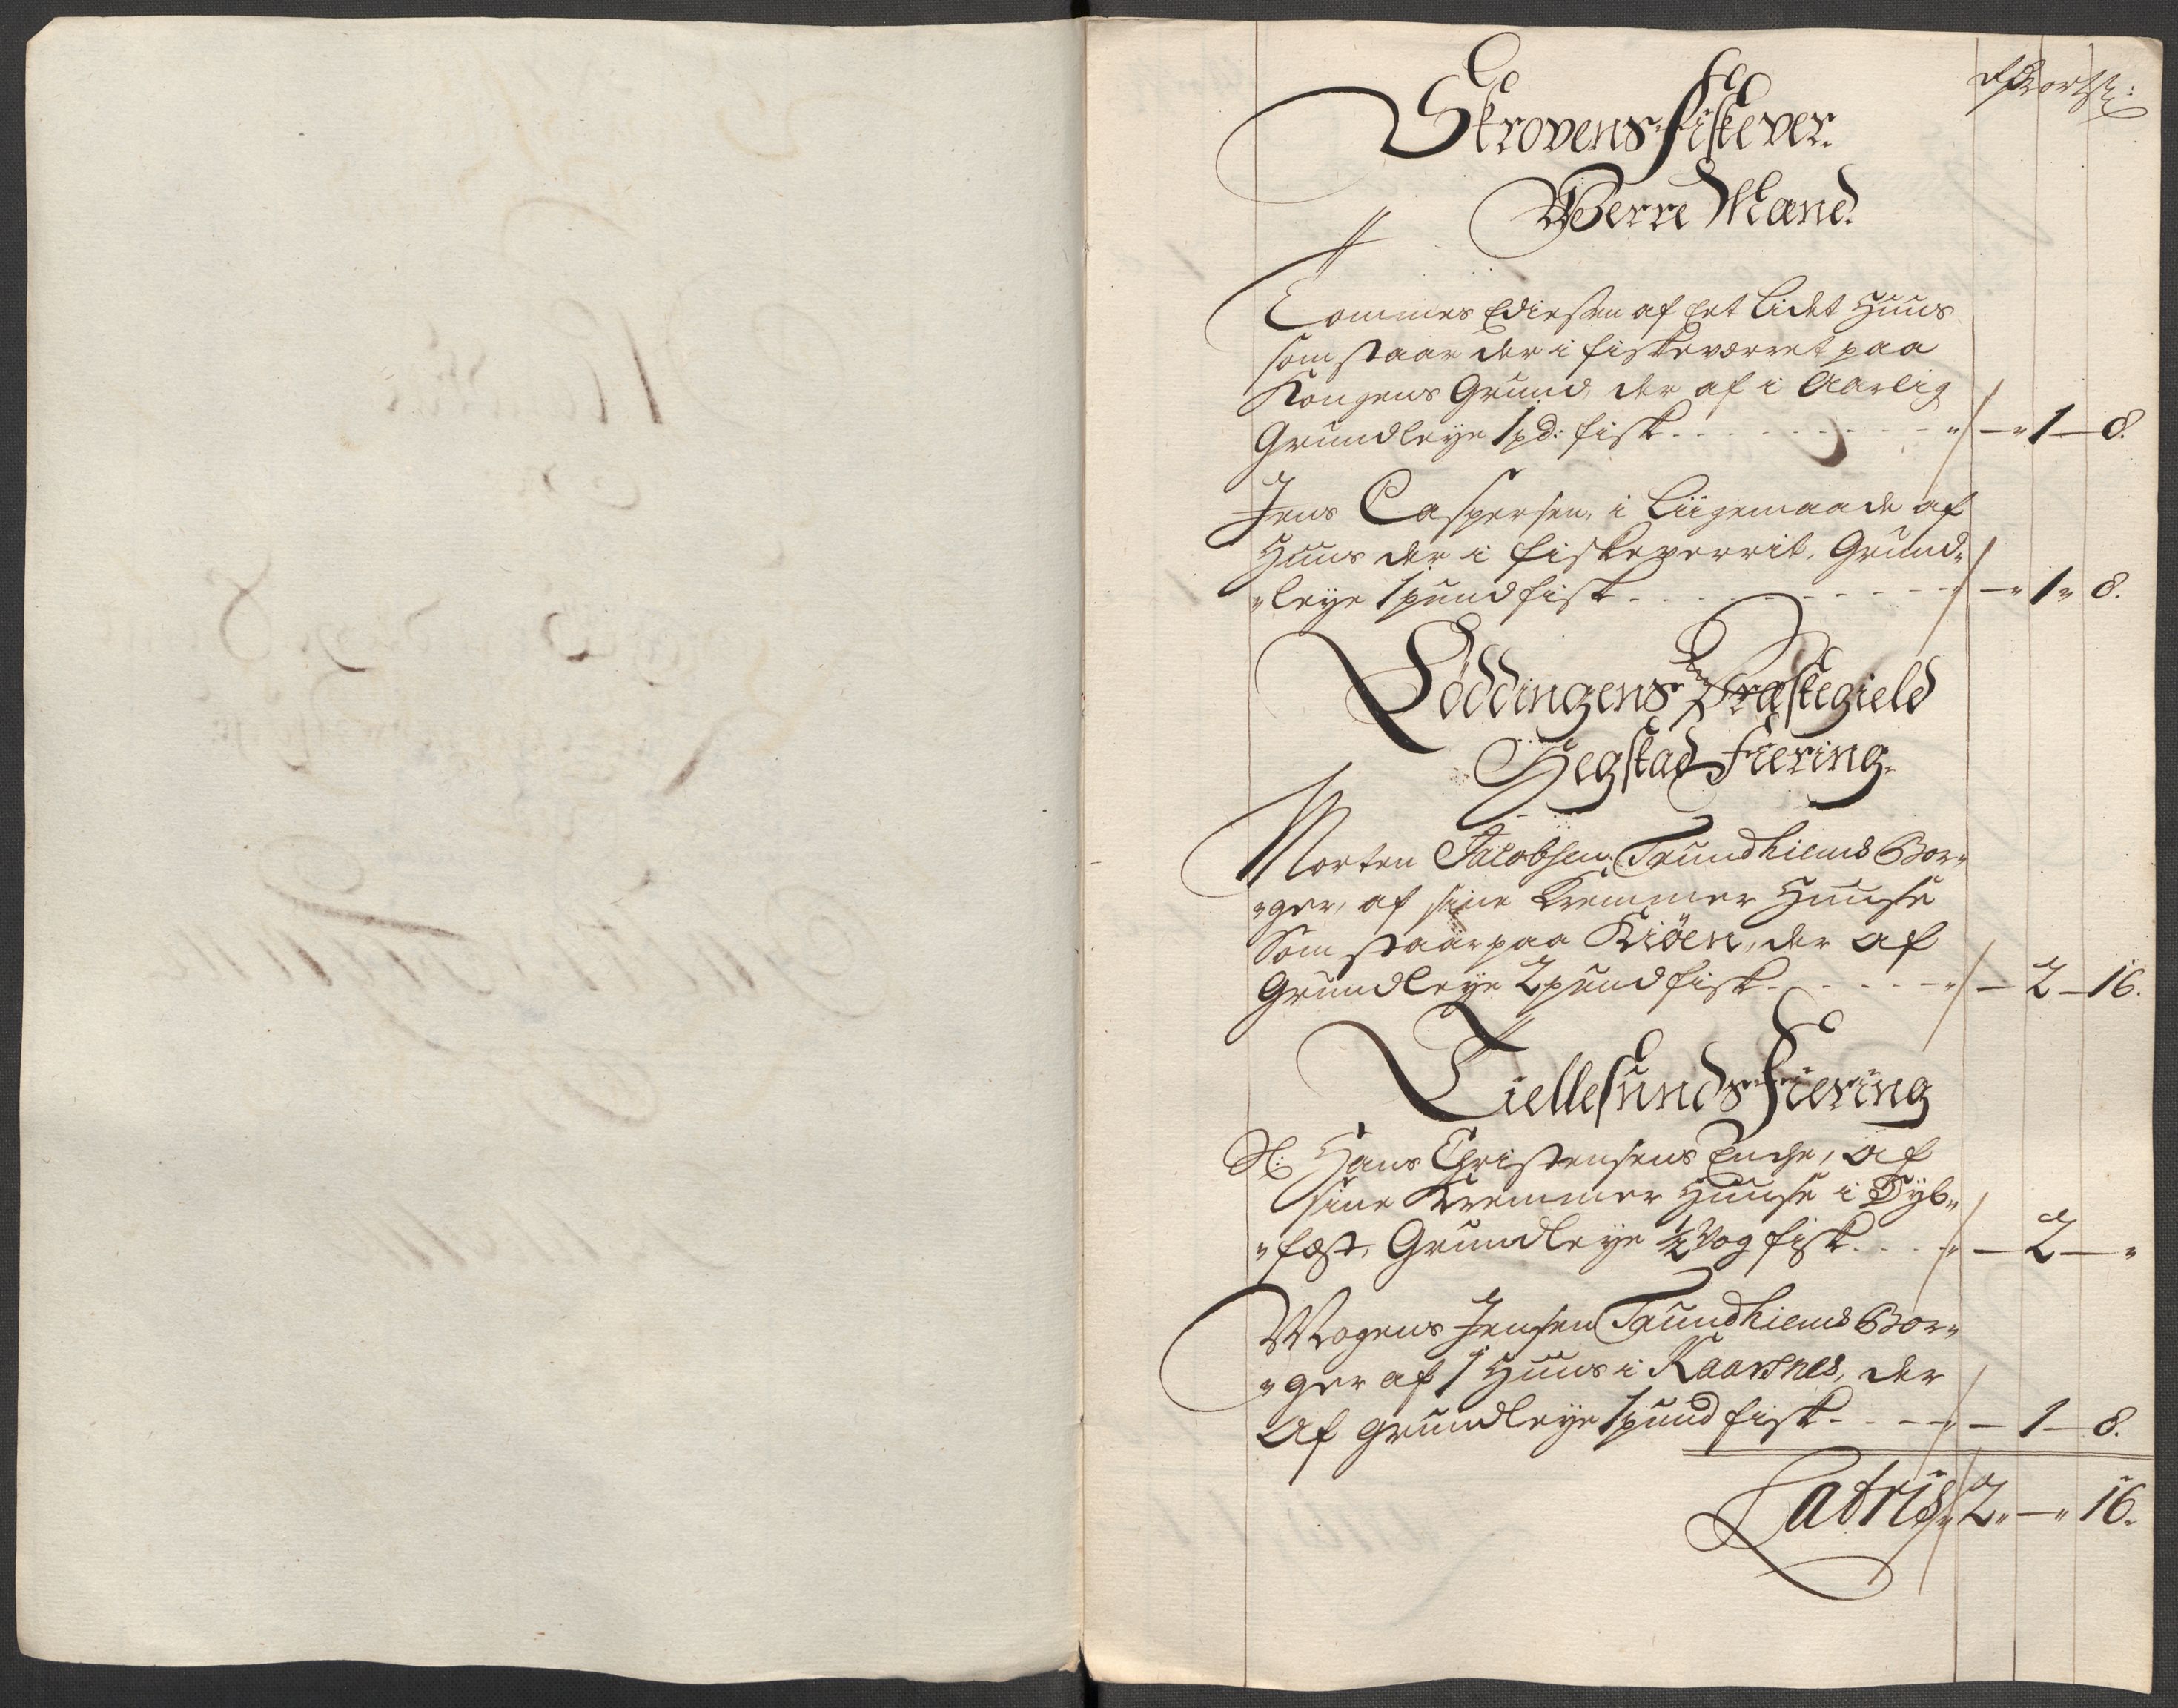 Skrovens Fiskever.
Werre Mænd.
Tommes Ediesen af Et lidet Huus
som staar der i fiskeværret paa
Kongens Grund, der af i Aarlig
Grundleye 1 pd: fisk - 1 - 8.
Jens Caspersen, i liigemaade af
Huus der i fiskeverrit, Grund„
„leye 1 pund fisk - 1 „ 8.
Löddingens Præstegield
Hegstad Fiering.
Morten Jacobsen Trundhiems Bor„
„ger, af sine Kremmer Huuse
Som staar paa Kiöen, der af
Grundleye 2 pund fisk - 2 - 16.
Tiellesunds Fiering
Sl: Hans Christensens Enche, af
sine Kremmer Huuse i Dyb„
„fæst, Grundleye ½ Vog fisk - 2 - „
Mogens Jensen Trundhiems Bor„
„ger af 1 Huus i Kaarsnes, der
Af grundleye 1 pund fisk - 1 - 8.
Latris 2 „ - „ 16.